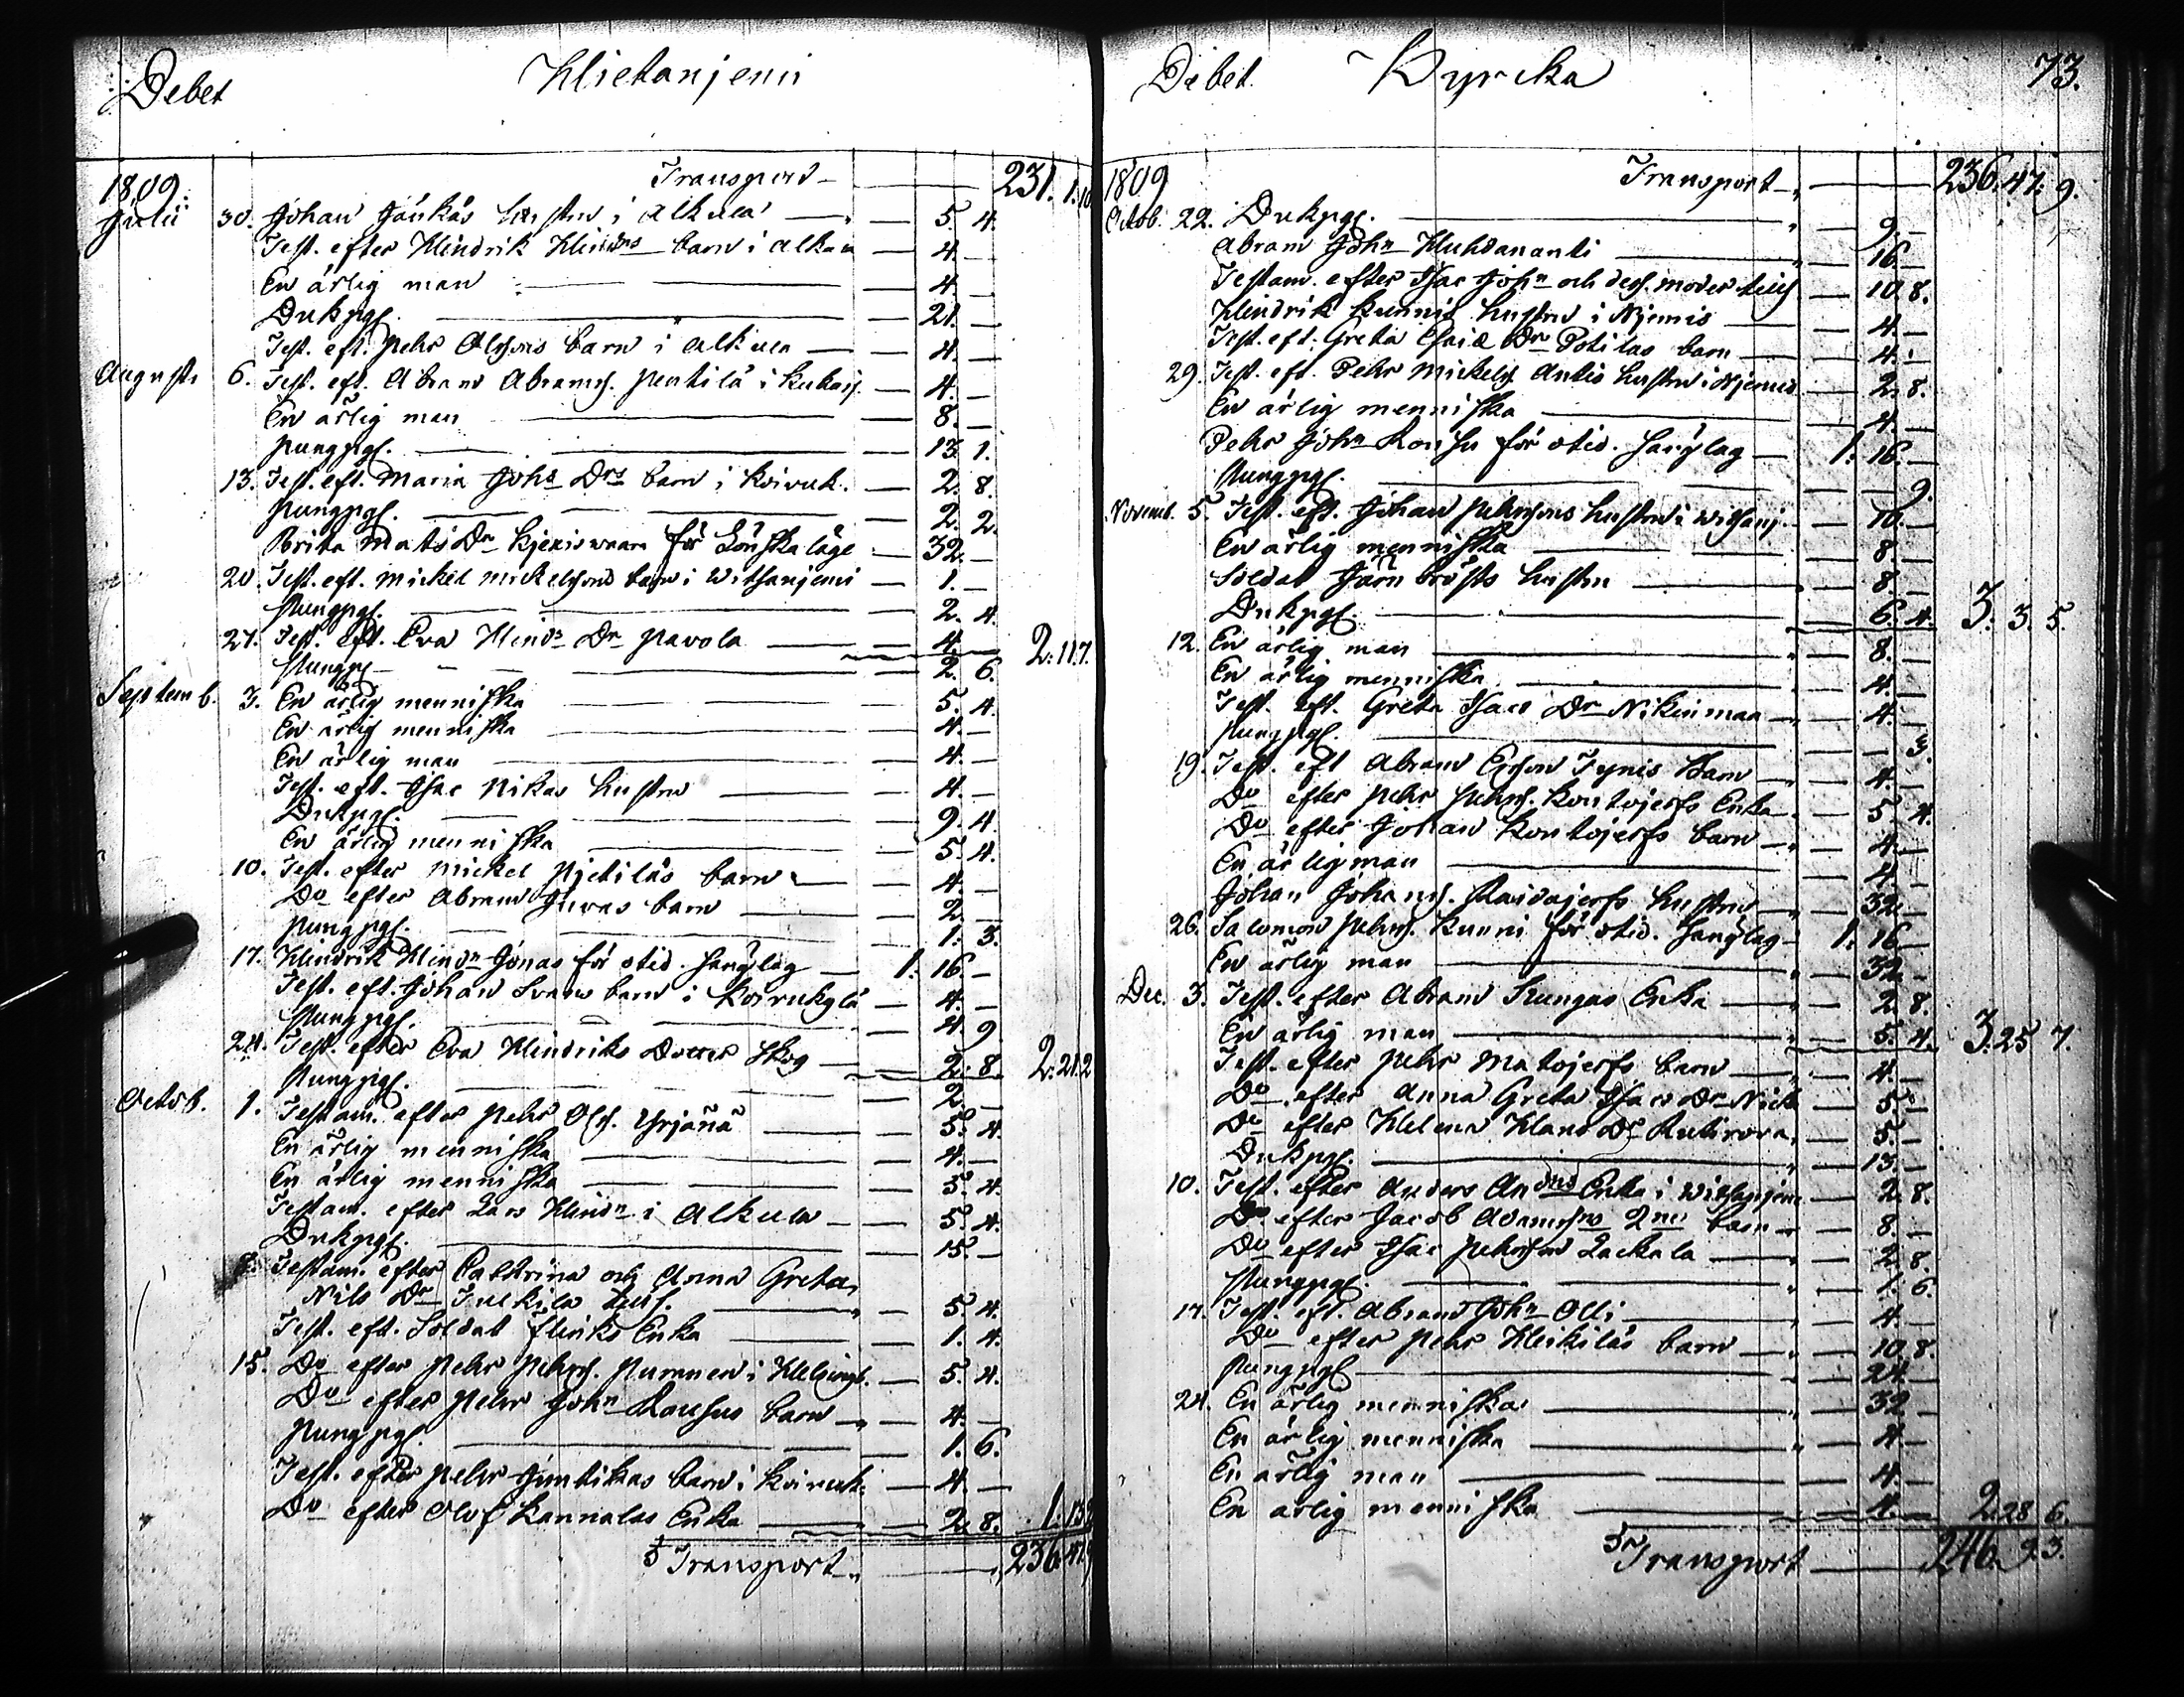 Debet Hietaniemi
Transport 231. 1. 10
1809.
Julii 30. Johan Jönkäs hustru i Alkula 5. 4.
Test. efter Hindrik Hindrs barn i Alkula 4. —
En ärlig man 4. —
Dukpgr. 21. —
Test. eft. Pehr Olssons barn i Alkula 4. —
Augusti 6. Test. eft. Abram Abramss. Pentilä i Kukasj. 4. —
En ärlig man 8. —
Pungpgr. 13. 1.
13. Test. eft. Maria Johs Drs barn i Koivuk. 2. 8.
Pungpgr. 2. 2.
Brita Mats Dr Kjexiswaara för Lönskaläge 32. —
20. Test. eft. Mickel Mickelssons barn i Witsanjemi 1. —
Pungpgr. 2. 4.
27. Test. eft. Eva Hinds Dr Pavola 4. — 2: 11. 7.
Pungpgr. 2. 6.
Septemb. 3. En ärlig menniska 5. 4.
En ärlig menniska 4. —
En ärlig man 4. —
Test. eft. Isac Nikas hustru 4. —
Dukpgr. 9. 4.
En ärlig menniska 5. 4.
10. Test. efter Mickel Pjetiläs barn 4. —
Do efter Abram Juvas barn 2. —
Pungpgr. 1. 3.
17. Hindrik Hindn Jonas för otid. sänglag 1: 16. —
Test. eft. Johan Svans barn i Koivukylä 4. —
Pungpgr. 4. 9
24. Test. efter Eva Hindriks Dotter Skog 2. 8. 2: 21. 2
Pungpgr. 2. —
Octob. 1. Testam. efter Pehr Olss. Yrjänä 5. 4.
En ärlig menniska 4. —
En ärlig menniska 5. 4.
Testam. efter Lars Hindn i Alkula 5. 4.
Dukpgr. 15. —
8. Testam. efter Cathrina och Anna Greta
Nils Dr Juckila tills. 5. 4.
Test. eft. Soldat Flinks Enka 1. 4.
15. Do efter Pehr Pehrss. Nummen i Helsingb. 5. 4.
Do efter Pehr John Rousus barn 4. —
Pungpgr. 1. 6.
Test. efter Pehr Juntikas barn i Koivuk. 4. —
Do efter Olof Kannalas Enka 2. 8. 1. 13. 2
Transport 236. 47. 9
Debet Kyrcka 73.
1809 Transport 236. 47. 9.
Octob. 22. Dukpgr. 9. —
Abram John Huhdananti 16. —
Testam. efter Isac John och dess moder tills 10. 8.
Hindrik Kunnis hustru i Njemis 4. —
Test. eft. Greta Esaiæ Dr Potilas barn 4. —
29. Test. eft. Pehr Mickelss. Antis hustru i Njemis 2. 8.
En ärlig menniska 4. —
Pehr John Rousu för otid. sänglag 1: 16. —
Pungpgr. 9
Novemb. 5. Test. eft. Johan Pehrssons hustru i Witsanj. 10. —
En ärlig menniska 8. —
Soldat Järnbrösts hustru 8. —
Dukpgr. 6. 4. 3: 3. 5.
12. En ärlig man 8. —
En ärlig menniska 4. —
Test. eft. Greta Isacs Dr Nikinmaa 4. —
Pungpgr. 3.
19. Test. eft. Abram Ersson Tynis Barn 4. —
Do efter Pehr Pehrss. Kontojerfs Enka 5. 4.
Do efter Johan Kontojerfs barn 4. —
En ärlig man 4. —
Johan Johanss. Raidajerfs hustru 32. —
26. Salomon Pehrss. Kunni för otid. sänglag 1: 16. —
En ärlig man 32. —
Dec. 3. Test. efter Abram Kungas Enka 2. 8.
En ärlig man 5. 4. 3: 25. 7.
Test. efter Pehr Matojerfs barn 4. —
Do efter Anna Greta Isacs Dr Nick 5. —
Do efter Helena Hans Dr Rutirova 5. —
Dukpgr. 13. —
10. Test. efter Anders Andrs Enka i Witsanjemi 2. 8.
Do efter Jacob Adamssons 2ne barn 8. —
Do efter Isac Pehrsson Lackala 2. 8.
Pungpgr. 1. 6.
17. Test. eft. Abram John Olli 4. —
Do efter Pehr Heikiläs barn 10. 8.
Pungpgr. 24. —
24. En ärlig menniska 32. —
En ärlig menniska 4. —
En ärlig man 4. —
En ärlig menniska 4. — 2: 28. 6.
Transport 246. 9. 3.